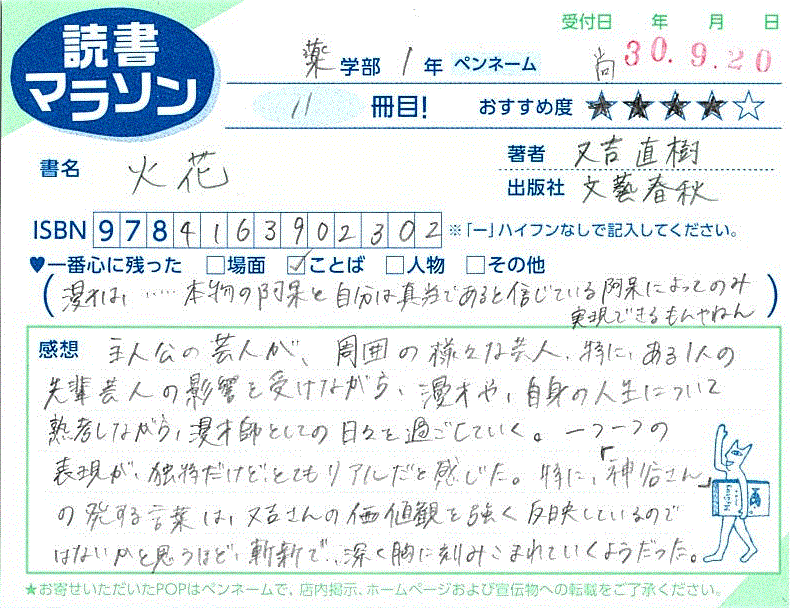 読書
マラソン
受付日 年 月 日
薬学部 1年 ペンネーム 尚 30.9.20
11 冊目! おすすめ度 ★★★★☆
書名 火花
著者 又吉直樹
出版社 文藝春秋
ISBN 9784163902302 ※「ー」ハイフンなしで記入してください。
♥一番心に残った □場面 ☑ことば □人物 □その他
(漫才は、……本物の阿呆と自分は真当であると信じている阿呆によってのみ
実現できるもんやねん)
感想 主人公の芸人が、周囲の様々な芸人、特に、ある1人の
先輩芸人の影響を受けながら、漫才や、自身の人生について
熟考しながら、漫才師としての日々を過ごしていく。一つ一つの
表現が、独特だけど、とてもリアルだと感じた。特に、「神谷さん」
の発する言葉は、又吉さんの価値観を強く反映しているので
はないかと思うほど、斬新で、深く胸に刻みこまれていくようだった。
★お寄せいただいたPOPはペンネームで、店内掲示、ホームページおよび宣伝物への転載をご了承ください。